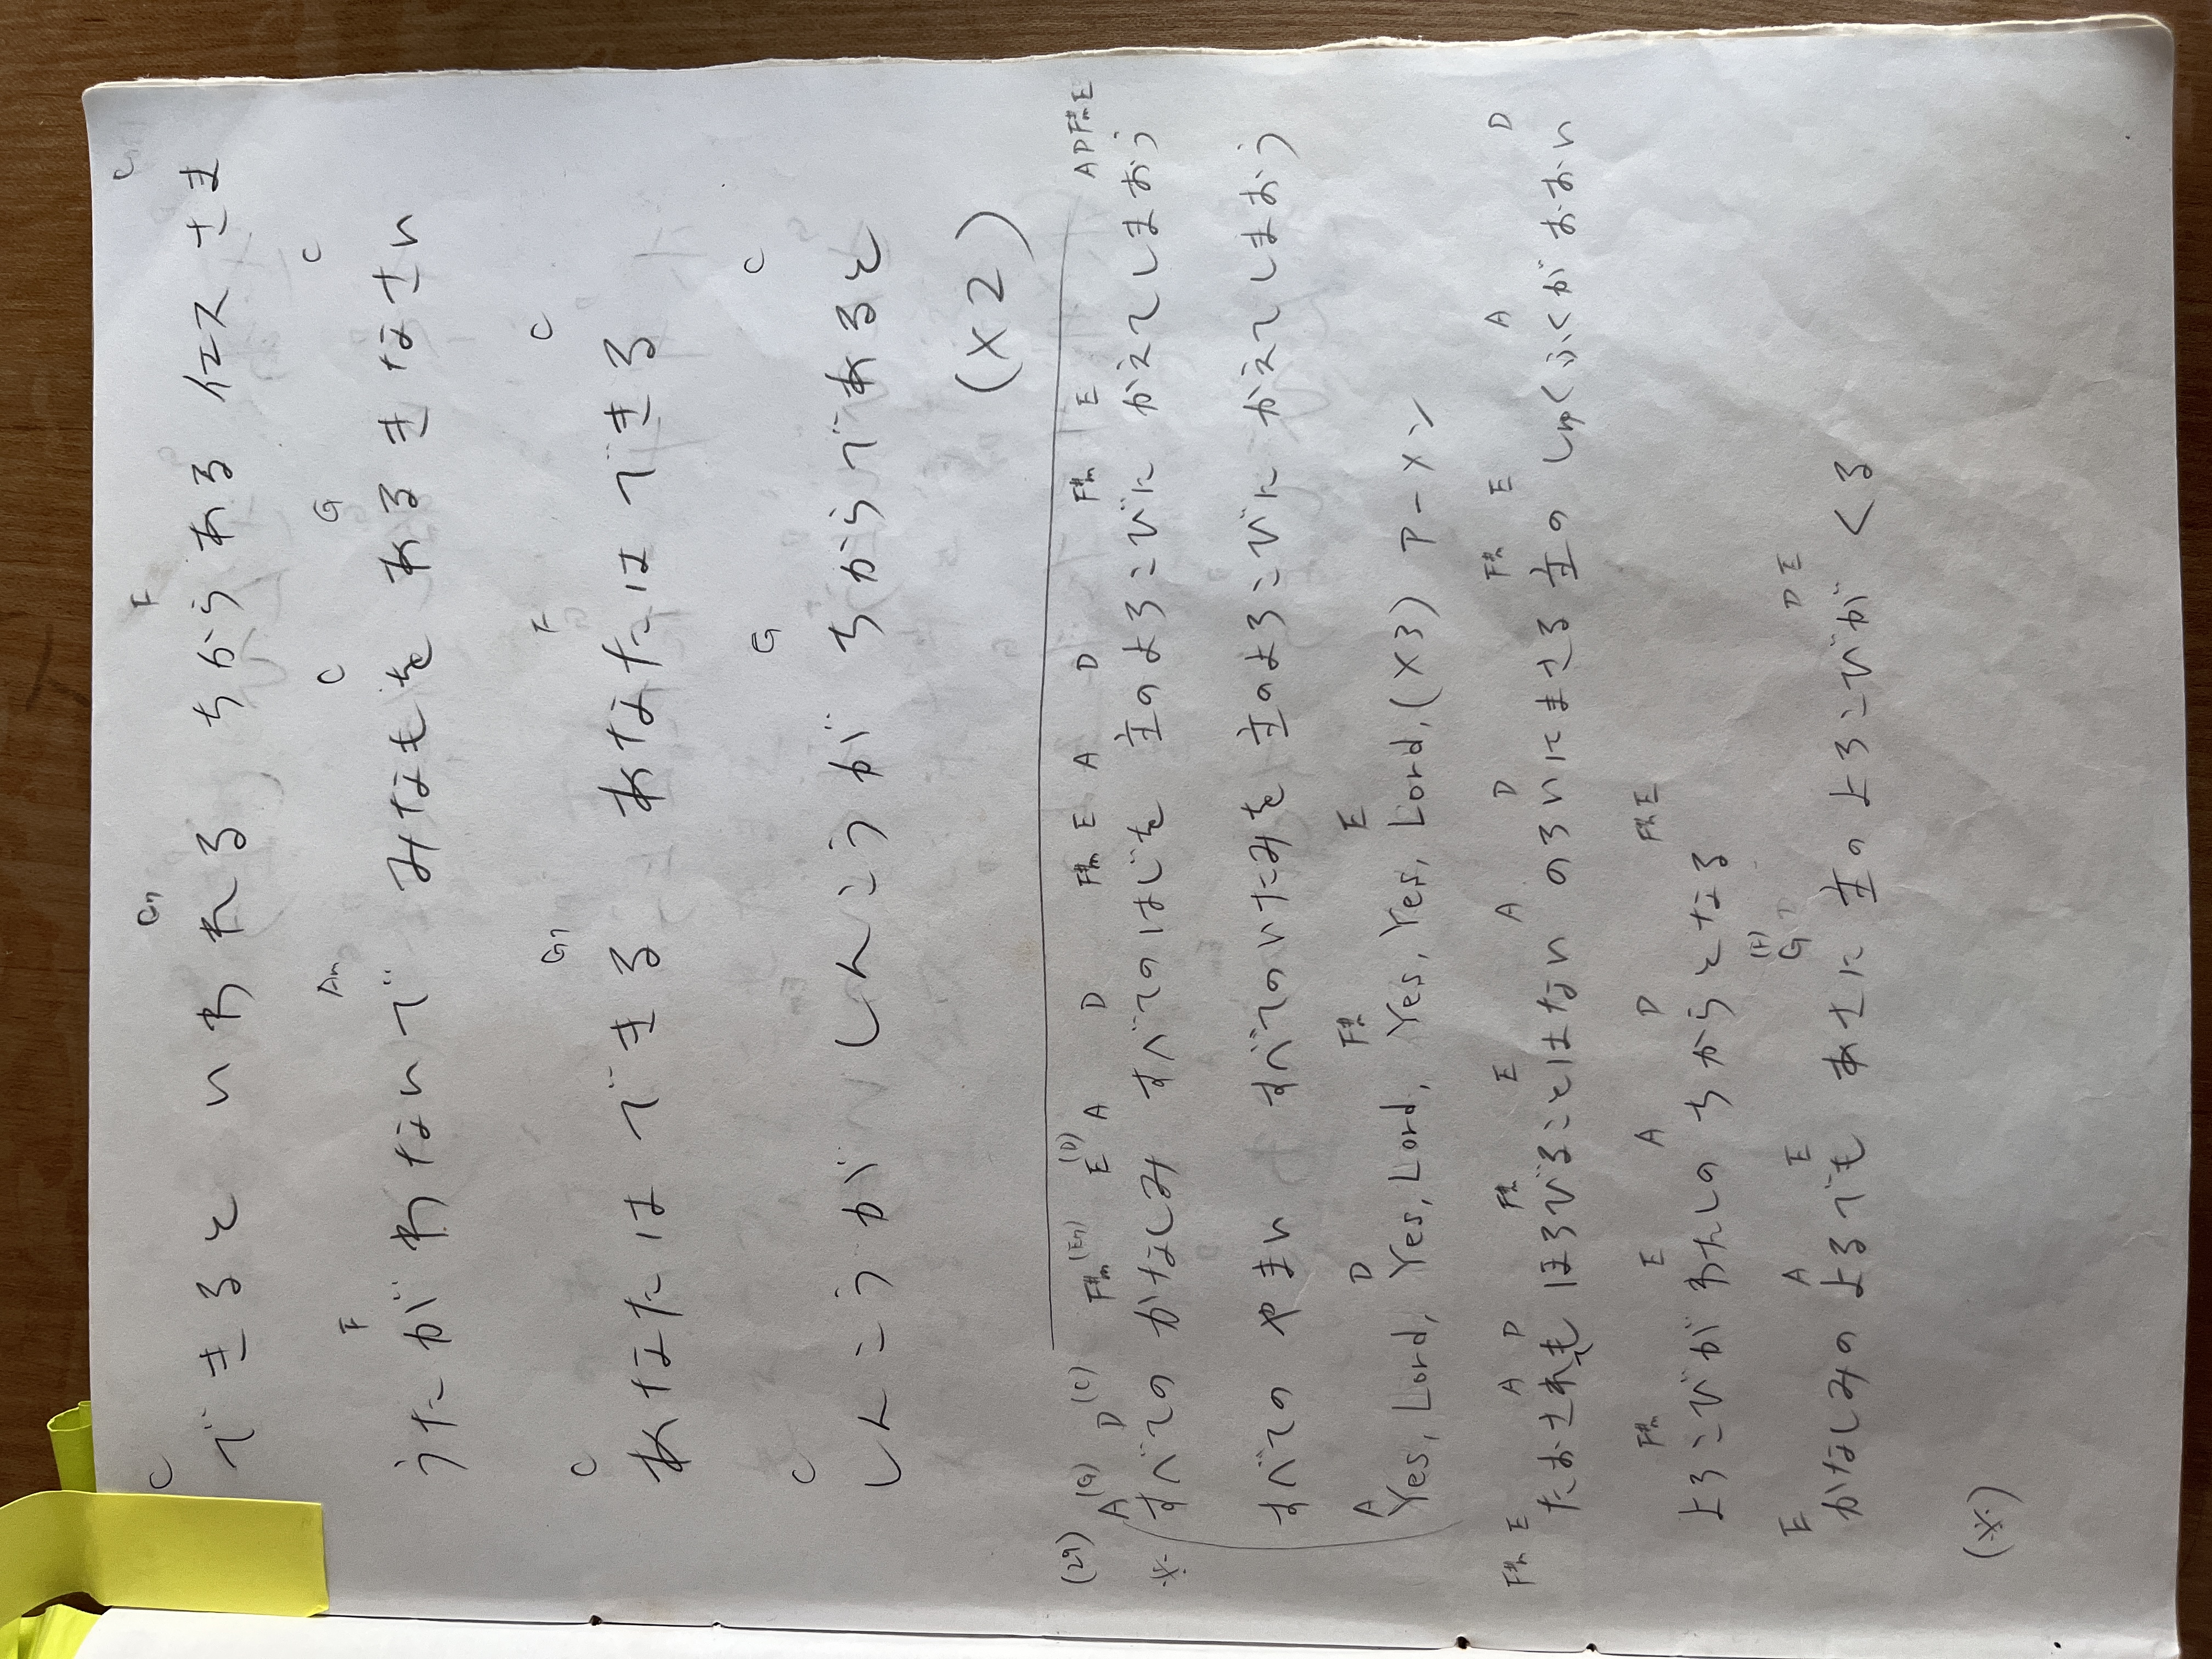 C G7 F G7
できると いわれる ちからある イエスさま
F Am C G C
うたがわないで みなもを あるきなさい
C G7 F C
あなたは できる あなたは できる
C G C
しんこうが しんこうが ちからであると
(×2)
(29) A(G) D(C) F#m(Em) E(D) A D F#m E A D F#m E A D F#m E
※ すべての かなしみ すべてのはじを 主のよろこびに かえてしまおう
すべての やまい すべてのいたみを 主のよろこびに かえてしまおう
A D F#m E
Yes, Lord, Yes, Lord, Yes, Yes, Lord, (×3) アーメン
F#m E A D F#m E A D F#m E A D
たおされても ほろびることはない のろいにまさる 主の しゅくふくが おおい
F#m E A D F#m E
よろこびが わたしの ちからとなる
E A E (F) G D E
かなしみの よるでも あさに 主の よろこびが くる
(※)